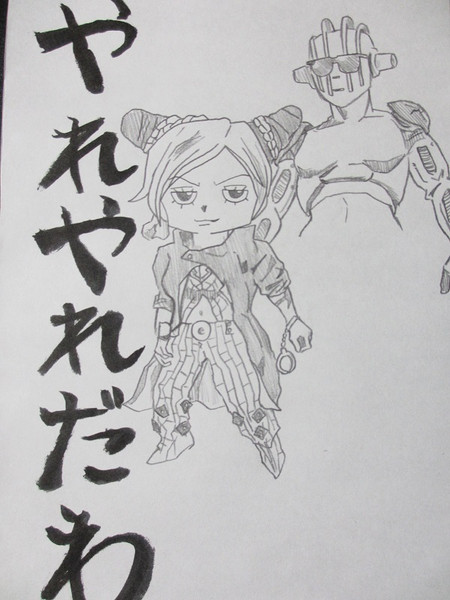 やれやれだわ